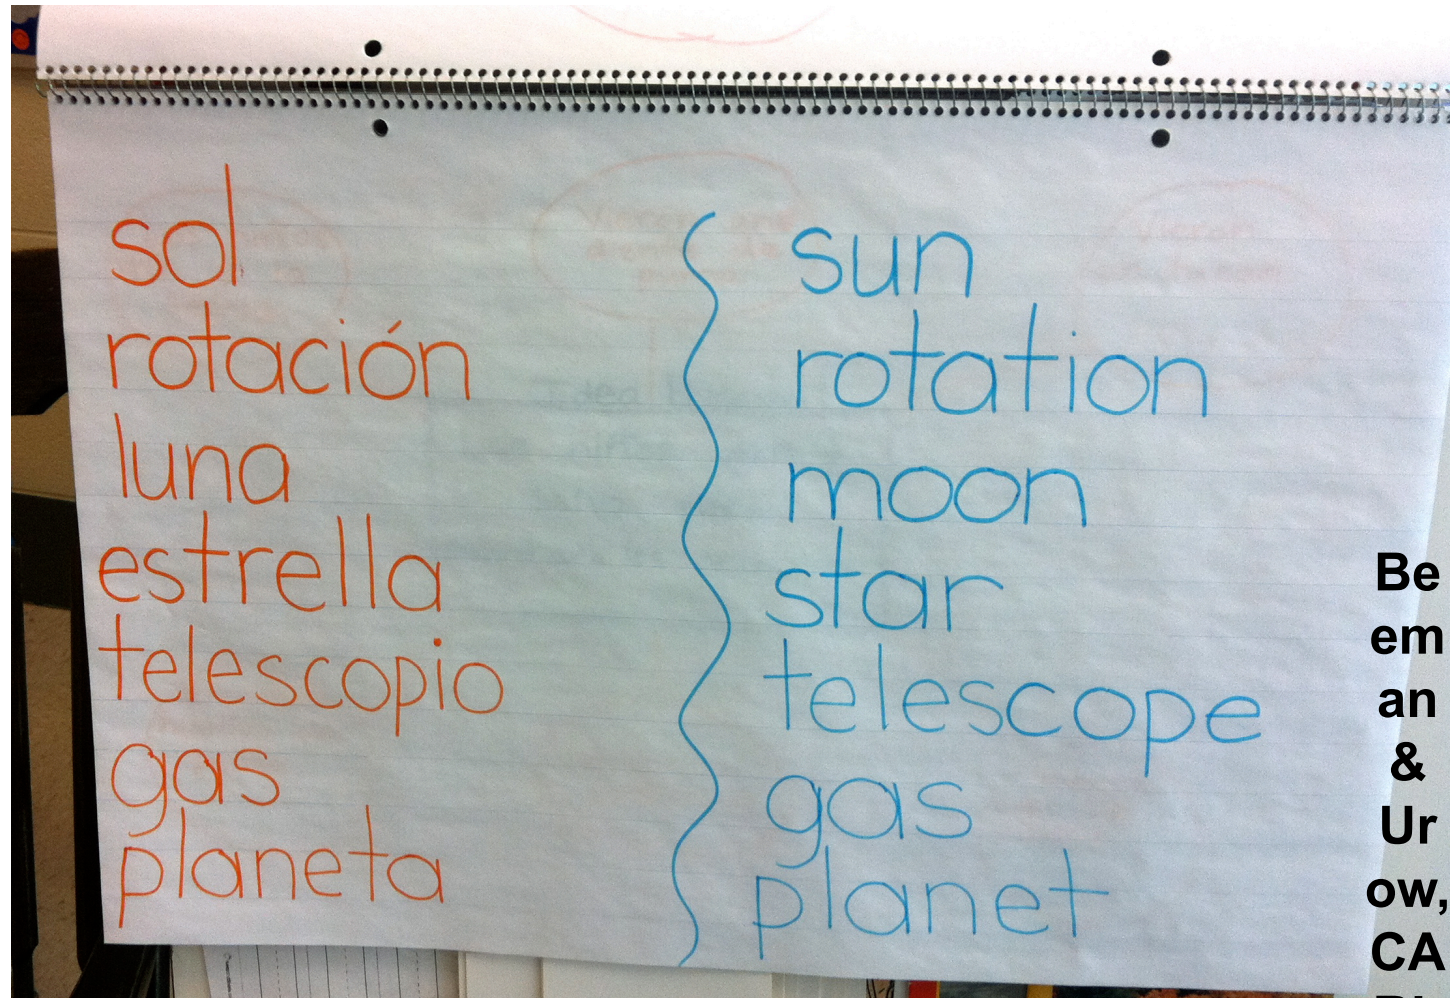 sol
rotación
luna
estrella
telescopio
gas
planeta
sun
rotation
moon
star
telescope
gas
planet
Be
em
an
&
Ur
ow,
CA